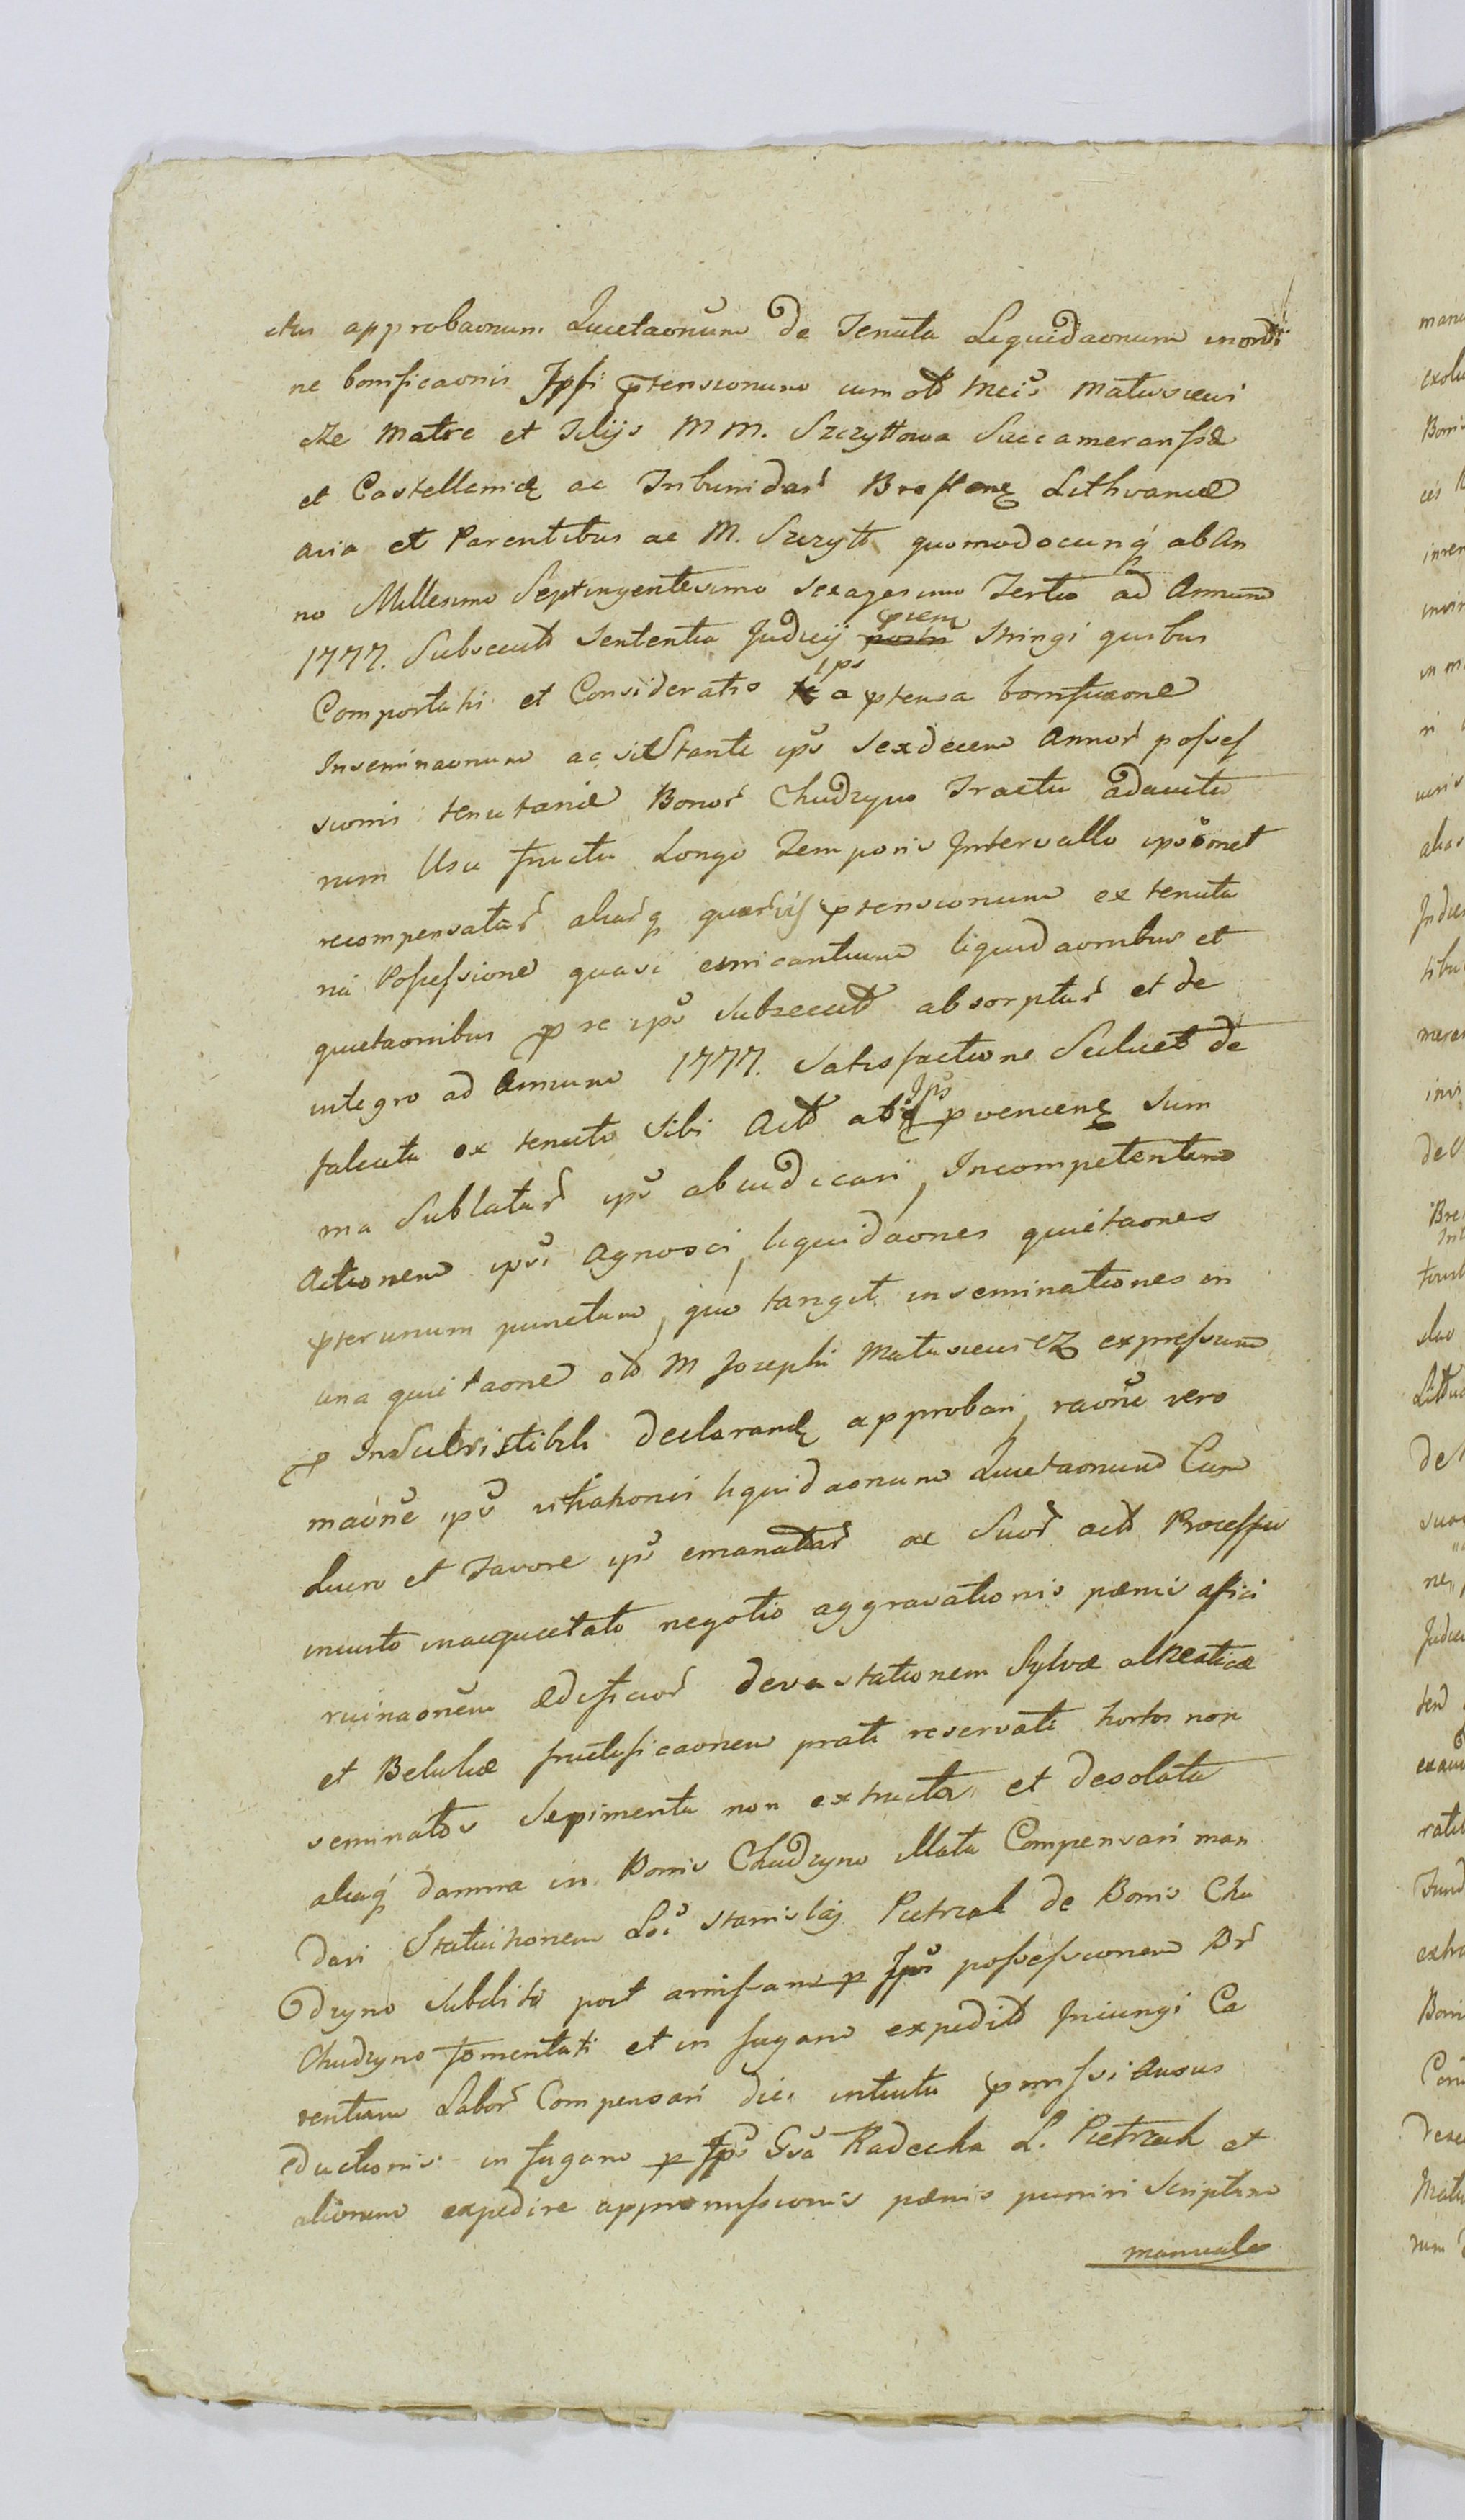 ctus approbaonum Quietaonũm de Tenuta Liquidaonum inordi
ne bonificaonis Ipsi ptensionum cum olt Mcis Matusiewi
cze Matre et Filijs M M. Szczyttowa Succameranssa
et Castellenidę ac Tribunidar Brestenę Lithvaniæ
avia et Parentibus ac M. Szczytt quomodocunq ab An
no Millesimo Septingentesimo sexagesimo Tertio ad Annum
1777. Subsecut Sententia Judicij psenti Stringi quibus
Comportatis et Consideratis ips a ptensa bonificaone
Inseminaonum ac sustante ips Sexdecem Annor posses
sionis tenutariæ Bonor Chudzyno Tractu adauctu
rum Usu fructu Longo Temporis Intervallo ipsomet
recompensatar aliarq quarvis ptensionum ex tenuta
ria Possessione quasi emicantium liquidaonibus et
quietaonibus p se ips subsecut absorptar et de
integro ad Annum 1777. Satisfactione Scilicet de
falcata ex tenuta sibi Act ab Ips pvenienę Sum
ma Sublatar ips abiudicari, Incompetentem
Actionem ipsi Agnosci, liquidaones quietaones
pter unum punctum, quo tangit inseminationes in
una quietaone olt M Josephi Matusiewicz expressum
p Insubsistibili declarandę approbari, raone vero
maone ips vitiationis liquidaonum Quietaonum Cum
Lucro et Favore ips emanatar ac Suor act Processu
iniusto inacquietato negotio aggravationis pænis afici
ruinaonem ædificior devastationem Sylvæ alneaticæ
et Betulæ fructificaonem prati reservati hortos non
seminatos Sepimenta non extructa et desolata
aliaq damna in Bonis Chudzyno illata Compensari man
dari Statuitionem Loi Stanislaj Pietrzak de Bonis Chu
dzyno subditi post amissam p Ips possessionem Br
Chudzyno fomentati et in fugam expedit Iniungi Ca
rentiam Labor Compensari dici intuitu pmissi Ausus
eductionis in fugam p Ips Gsa Radecka L. Pietrzak et
aliorum expedire appromissionis pænis puniri Scriptum
manuale